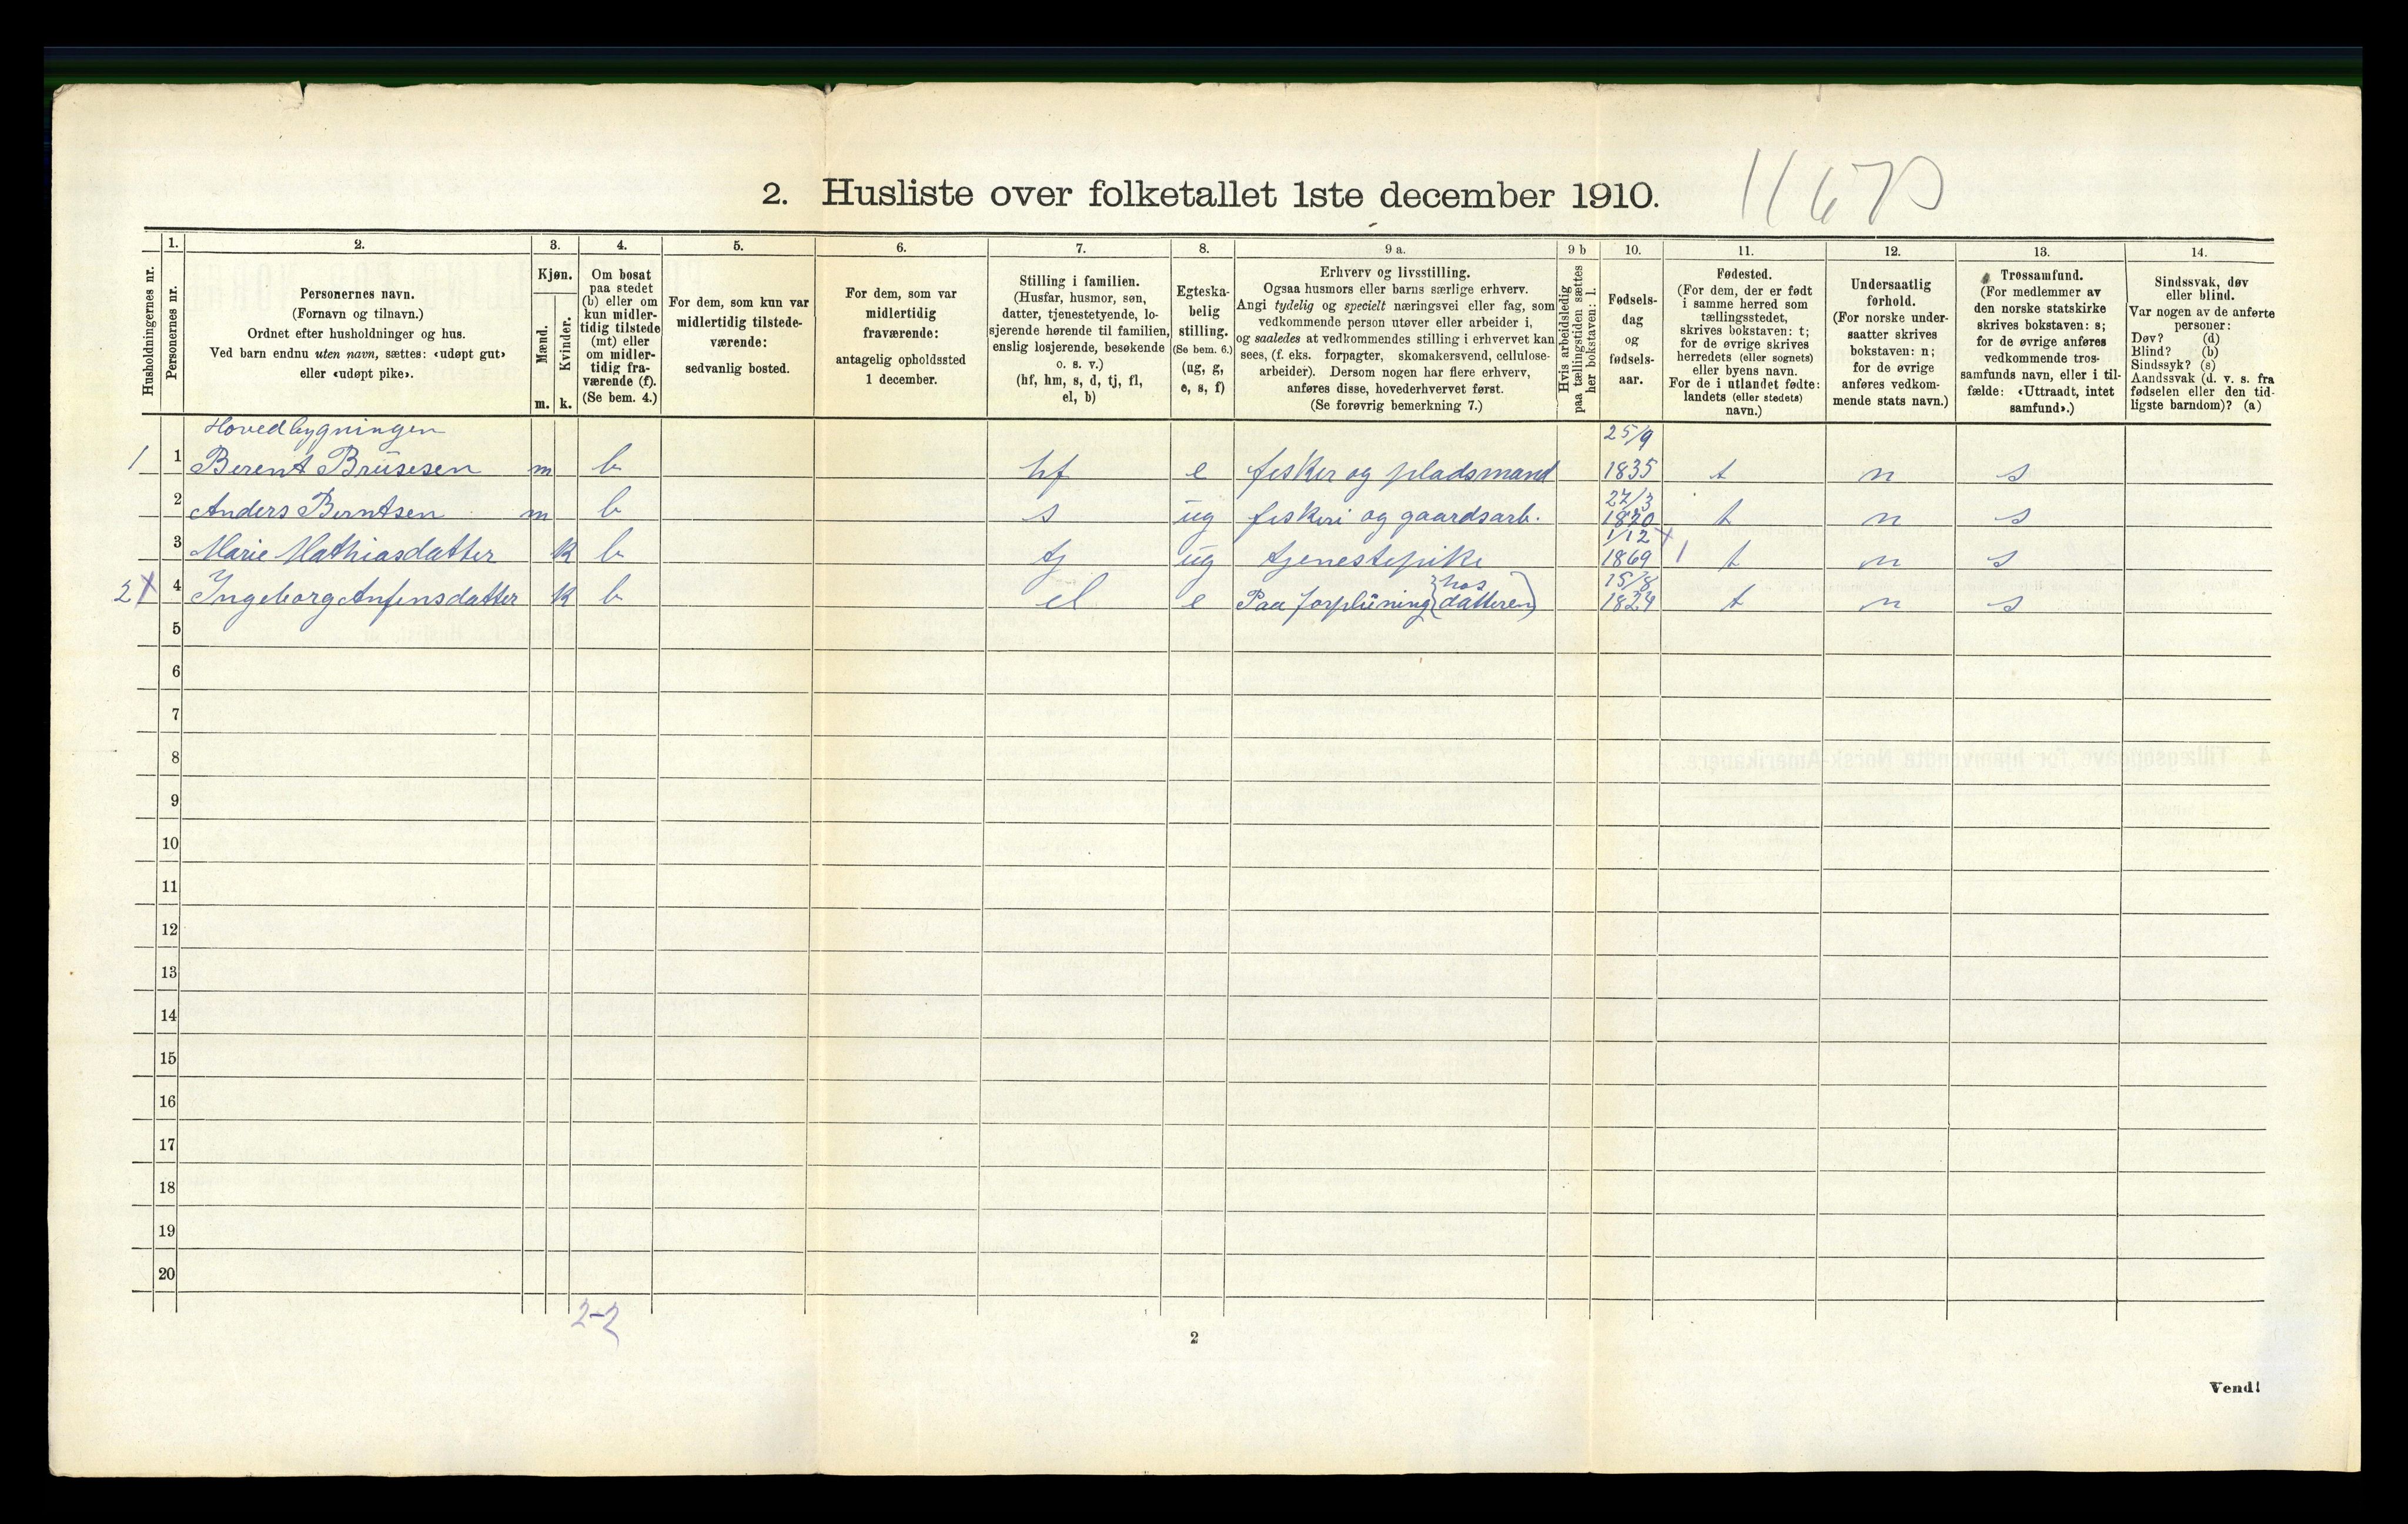 2. Husliste over folketallet 1ste december 1910.
1. 2. 3. 4. 5. 6. 7. 8. 9 a. 9 b 10. 11. 12. 13. 14.
Husholdningernes nr.
Personernes nr.
Personernes navn.
(Fornavn og tilnavn.)
Ordnet efter husholdninger og hus.
Ved barn endnu uten navn, sættes: «udøpt gut»
eller «udøpt pike».
Kjøn.
Mænd.
Kvinder.
m. k.
Om bosat
paa stedet
(b) eller om
kun midler-
tidig tilstede
(mt) eller
om midler-
tidig fra-
værende (f).
(Se bem. 4.)
For dem, som kun var
midlertidig tilstede-
værende:
sedvanlig bosted.
For dem, som var
midlertidig
fraværende:
antagelig opholdssted
1 december.
Stilling i familien.
(Husfar, husmor, søn,
datter, tjenestetyende, lo-
sjerende hørende til familien,
enslig losjerende, besøkende
o. s. v.)
(hf, hm, s, d, tj, fl,
el, b)
Egteska-
belig
stilling.
(Se bem. 6.)
(ug, g,
e, s, f)
Erhverv og livsstilling.
Ogsaa husmors eller barns særlige erhverv.
Angi tydelig og specielt næringsvei eller fag, som
vedkommende person utøver eller arbeider i,
og saaledes at vedkommendes stilling i erhvervet kan
sees, (f. eks. forpagter, skomakersvend, cellulose-
arbeider). Dersom nogen har flere erhverv,
anføres disse, hovederhvervet først.
(Se forøvrig bemerkning 7.)
Hvis arbeidsledig
paa tællingstiden sættes
her bokstaven: l.
Fødsels-
dag
og
fødsels-
aar.
Fødested.
(For dem, der er født
i samme herred som
tællingsstedet,
skrives bokstaven: t;
for de øvrige skrives
herredets (eller sognets)
eller byens navn.
For de i utlandet fødte:
landets (eller stedets)
navn.)
Undersaatlig
forhold.
(For norske under-
saatter skrives
bokstaven: n;
for de øvrige
anføres vedkom-
mende stats navn.)
Trossamfund.
(For medlemmer av
den norske statskirke
skrives bokstaven: s;
for de øvrige anføres
vedkommende tros-
samfunds navn, eller i til-
fælde: «Uttraadt, intet
samfund».)
Sindssvak, døv
eller blind.
Var nogen av de anførte
personer:
Døv? (d)
Blind? (b)
Sindssyk? (s)
Aandssvak (d. v. s. fra
fødselen eller den tid-
ligste barndom)? (a)
Hovedbygningen 25/9
1 1 Berent Brüsesen m b hf e fisker og pladsmand 1835 t n s
27/3
2 Anders Berntsen m b s ug fiskeri og gaardsarb. t n s
1/12
3 Marie Mathiasdatter k b tj ug tjenestepike 1869 t n s
hos 15/8
2 4 Ingeborg Anfinsdatter k b el e Paa forpleining (datteren) 1824 t n s
5
6
7
8
9
10
11
12
13
14
15
16
17
18
19
20
2-2
2
Vend!